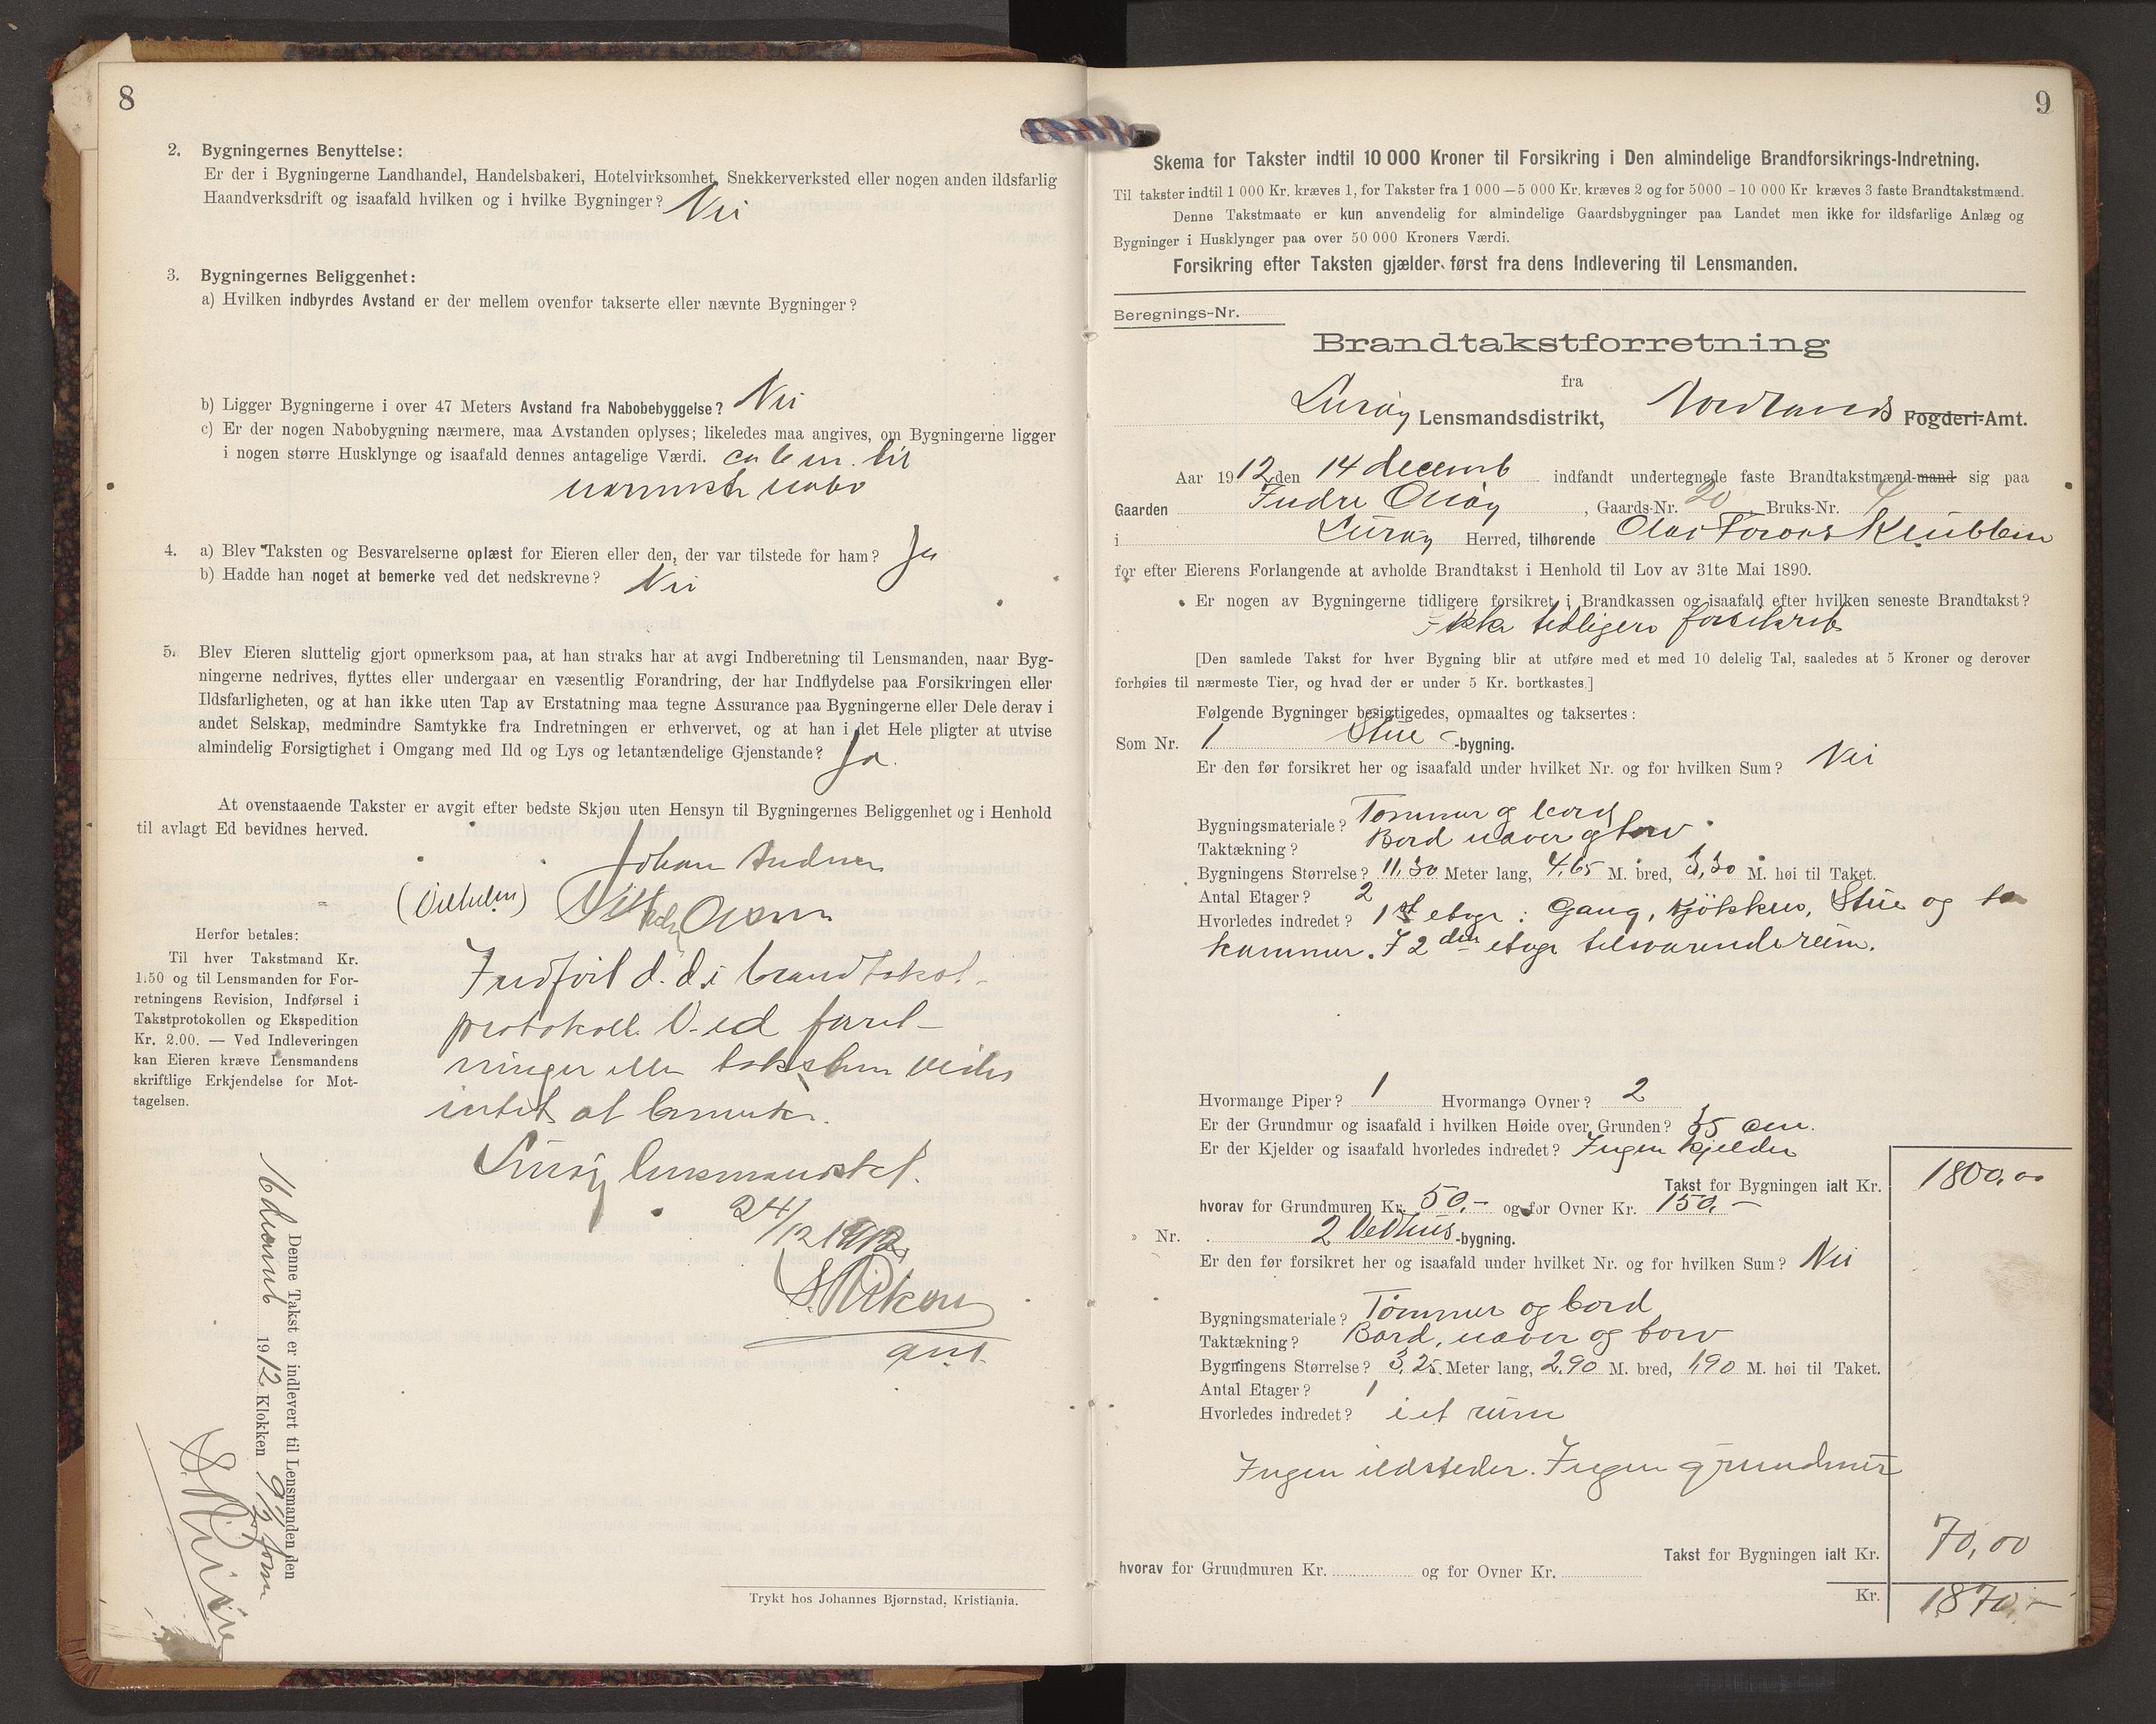 8
2. Bygningernes Benyttelse:
Er der i Bygningerne Landhandel, Handelsbakeri, Hotelvirksomhet, Snekkerverksted eller nogen anden ildsfarlig
Haandverksdrift og isaafald hvilken og i hvilke Bygninger? Nei
3. Bygningernes Beliggenhet:
a) Hvilken indbyrdes Avstand er der mellem ovenfor takserte eller nævnte Bygninger?
b) Ligger Bygningerne i over 47 Meters Avstand fra Nabobebyggelse? Nei
c) Er der nogen Nabobygning nærmere, maa Avstanden oplyses; likeledes maa angives, om Bygningerne ligger
i nogen større Husklynge og isaafald dennes antagelige Værdi. ca 6 m. til
nærmeste nabo
4. a) Blev Taksten og Besvarelserne oplæst for Eieren eller den, der var tilstede for ham? Ja
b) Hadde han noget at bemerke ved det nedskrevne? Nei
5. Blev Eieren sluttelig gjort opmerksom paa, at han straks har at avgi Indberetning til Lensmanden, naar Byg-
ningerne nedrives, flyttes eller undergaar en væsentlig Forandring, der har Indflydelse paa Forsikringen eller
Ildsfarligheten, og at han ikke uten Tap av Erstatning maa tegne Assurance paa Bygningerne eller Dele derav i
andet Selskap, medmindre Samtykke fra Indretningen er erhvervet, og at han i det Hele pligter at utvise
almindelig Forsigtighet i Omgang med Ild og Lys og letantændelige Gjenstande? Ja.
At ovenstaaende Takster er avgit efter bedste Skjøn uten Hensyn til Bygningernes Beliggenhet og i Henhold
til avlagt Ed bevidnes herved.
Johan Andersen
Herfor betales:
Til hver Takstmand Kr.
1.50 og til Lensmanden for For-
retningens Revision, Indførsel i
Takstprotokollen og Ekspedition
Kr. 2.00. — Ved Indleveringen
kan Eieren kræve Lensmandens
skriftlige Erkjendelse for Mot-
tagelsen.
Indført d. d. i brandtakst-
protokoll. Ved forret-
ningen eller taksten vides
intet at bemerke.
Lurøy lensmandskt.
24/12 1912
Denne Takst er indlevert til Lensmanden den
16 decemb 1912 Klokken 9 1/2 form
Trykt hos Johannes Bjørnstad, Kristiania.
9
Skema for Takster indtil 10 000 Kroner til Forsikring i Den almindelige Brandforsikrings-Indretning.
Til takster indtil 1 000 Kr. kræves 1, for Takster fra 1 000 – 5 000 Kr. kræves 2 og for 5000 – 10 000 Kr kræves 3 faste Brandtakstmænd.
Denne Takstmaate er kun anvendelig for almindelige Gaardsbygninger paa Landet men ikke for ildsfarlige Anlæg og
Bygninger i Husklynger paa over 50 000 Kroners Værdi.
Forsikring efter Taksten gjælder først fra dens Indlevering til Lensmanden.
Beregnings-Nr.
Brandtakstforretning
fra
Lurøy Lensmandsdistrikt, Nordlands Fogderi-Amt.
Aar 1912 den 14 decemb indfandt undertegnede faste Brandtakstmænd-mand sig paa
Gaarden Indre Onøy, Gaards-Nr. 20 Bruks-Nr. 4
i Lurøy Herred, tilhørende Olai Klubben
for efter Eierens Forlangende at avholde Brandtakst i Henhold til Lov av 31te Mai 1890.
Er nogen av Bygningerne tidligere forsikret i Brandkassen og isaafald efter hvilken seneste Brandtakst?
Ikke tidligere forsikret
[Den samlede Takst for hver Bygning blir at utføre med et med 10 delelig Tal, saaledes at 5 Kroner og derover
forhøies til nærmeste Tier, og hvad der er under 5 Kr. bortkastes]
Følgende Bygninger besigtigedes, opmaaltes og taksertes:
Som Nr. 1 Stue-bygning.
Er den før forsikret her og isaafald under hvilket Nr. og for hvilken Sum? Nei
Bygningsmateriale? Tømmer og bord
Taktækning? Bord næver og torv
Bygningens Størrelse? 11,30 Meter lang, 4,65 M. bred, 3,30 M. høi til Taket.
Antal Etager? 2
Hvorledes indredet? 1st etage: Gang, kjøkken, Stue og to
kammer. I 2den etage tilsvarende rum.
Hvormange Piper? 1 Hvormange Ovner? 2
Er der Grundmur og isaafald i hvilken Høide over Grunden? 35 cm.
Er der Kjelder og isaafald hvorledes indredet? Ingen kjelder
Takst for Bygningen ialt Kr. 1800,00
hvorav for Grundmuren Kr. 50,- og for Ovner Kr. 150,-
Nr. 2 Vedhus-bygning.
Er den før forsikret her og isaafald under hvilket Nr. og for hvilken Sum? Nei
Bygningsmateriale? Tømmer og bord
Taktækning? Bord, næver og torv
Bygningens Størrelse? 3,25 Meter lang, 2,90 M. bred, 1,90 M. høi til Taket.
Antal Etager? 1
Hvorledes indredet? i et rum
Ingen ildsteder. Ingen grundmur
Takst for Bygningen ialt Kr. 70,00
hvorav for Grundmuren Kr. og for Ovner Kr.
Kr. 1870,-